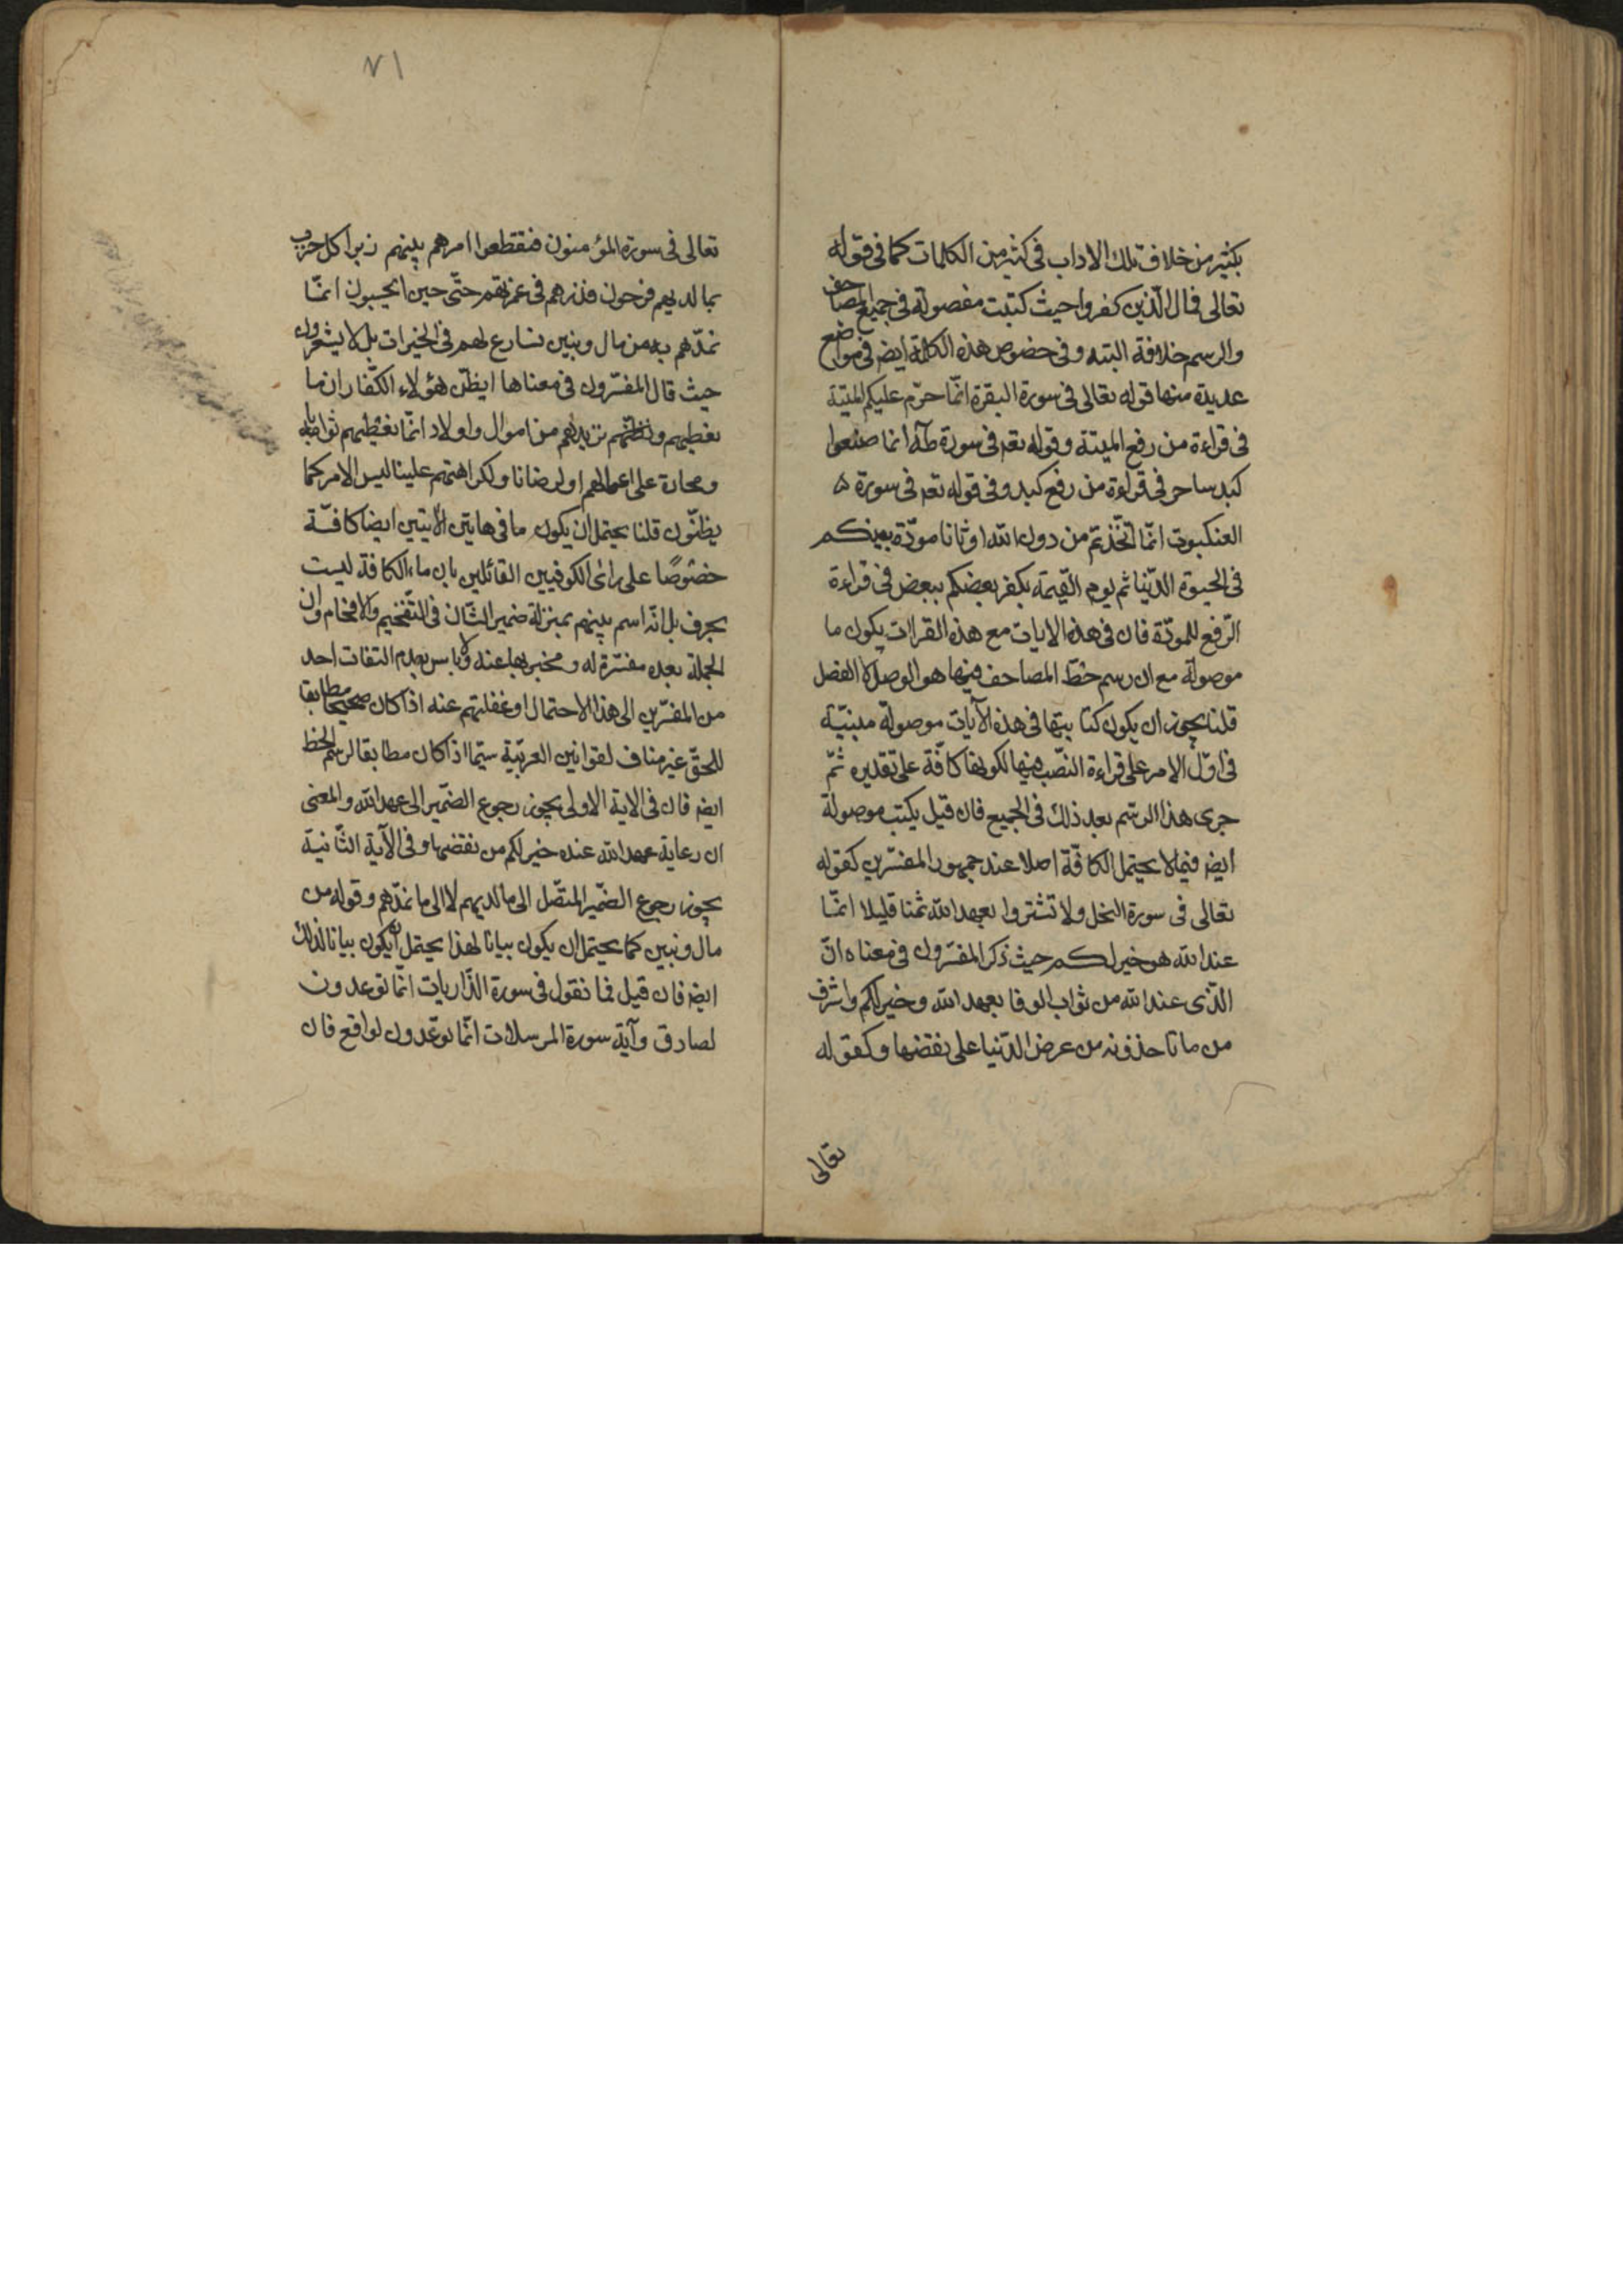 بكثير من خلاف تلك الاداب فى كثير من الكلمات كما فى قوله
تعالى فمال الّذين كفروا حيث كتبت مفصولة فى جميع المصاحف
والرسم خلافة البتة وفى خصوص هذه الكلمة ايضا فى مواضع
عديدة منها قوله تعالى فى سورة البقرة انّما حرّم عليكم الميتة
فى قراءة من رفع الميتة وقوله تعه فى سورة طه انما صنعوا
كيد ساحر فى قراءة من رفع كيد وفى قوله تعه فى سورة
العنكبوت انّما اتّخذتم من دون الله اوثانا مودّة بينكم
فى الحيوة الدّنيا ثم يوم القيمة يكفر بعضكم ببعض فى قراءة
الرّفع للمودّة فان فى هذه الايات مع هذه القراات يكون ما
موصولة مع ان رسم خطّ المصاحف فيها هو الوصل لا الفصل
قلنا يجوز ان يكون كتا بتها فى هذه الآيات موصولة مبنيّة
فى اوّل الامر على قراءة النّصب فيها لكونها كافّة على تقديره ثمّ
جرى هذا الرسم بعد ذلك فى الجميع فان قيل يكتب موصولة
ايضا فيما لا يحتمل الكافّة اصلا عند جمهور المفسّرين كقوله
تعالى فى سورة النحل ولا تشتروا بعهد الله ثمنا قليلا انمّا
عند الله هو خير لكم حيث ذكر المفسّرون فى معناه انّ
الّذى عند الله من ثواب الوفا بعهد الله وخير لكم واشرف
من ما تاخذونه من عرض الدّنيا على نقضها وكقوله
تعالى
٧١
تعالى فى سورة المؤمنون فتقطعوا امرهم بينهم زبرا كل حزب
بما لديهم فرحون فذرهم فى غمرتهم حتّى حين ايحسبون انمّا
نمدّهم به من مال وبنين نسارع لهم فى الخيرات بل لا يشعرون
حيث قال المفسّرون فى معناها ايظنّ هؤلاء الكفّار ان ما
نعطيهم ونزيدهم من اموال واولاد انّما نعطيهم ثوابا
ومجازة على اعمالهم او لرضانا ولكرامتهم علينا ليس الامر كما
يظنّون قلنا يحتمل ان يكون ما فى هاتين الآيتين ايضا كافّة
خصوصًا على راى الكوفيين القائلين بان ماء الكافة ليست
بحرف بل انّه اسم مبهم بمنزلة ضمير الشّان فى التّفخيم والافخام وان
الجملة بعده مفسّرة له ومخبر بها عنه ولا باس بعدم التفات احد
من المفسّرين الى هذا الاحتمال او غفلتهم عنه اذا كان صحيحا مطابقا
للحقّ غير مناف لقوانين العربيّة سيّما اذا كان مطابقا لرسم الخط
ايضا فان فى الاية الاولى يجوز رجوع الضّمير الى عهد الله والمعنى
ان رعاية عهد الله عنده خير لكم من نقضها وفى الآية الثّانيّة
يجوز رجوع الضّمير المتّصل الى ما لديهم لا الى ما نمدّهم وقوله من
مال وبنين كما يحتمل ان يكون بيانا لهذا يحتمل ان يكون بيانا لذلك
ايضا فان قيل فما نقول فى سورة الذّاريات انّما توعدون
لصادق وآية سورة المرسلات انّما توعدون لواقع فان